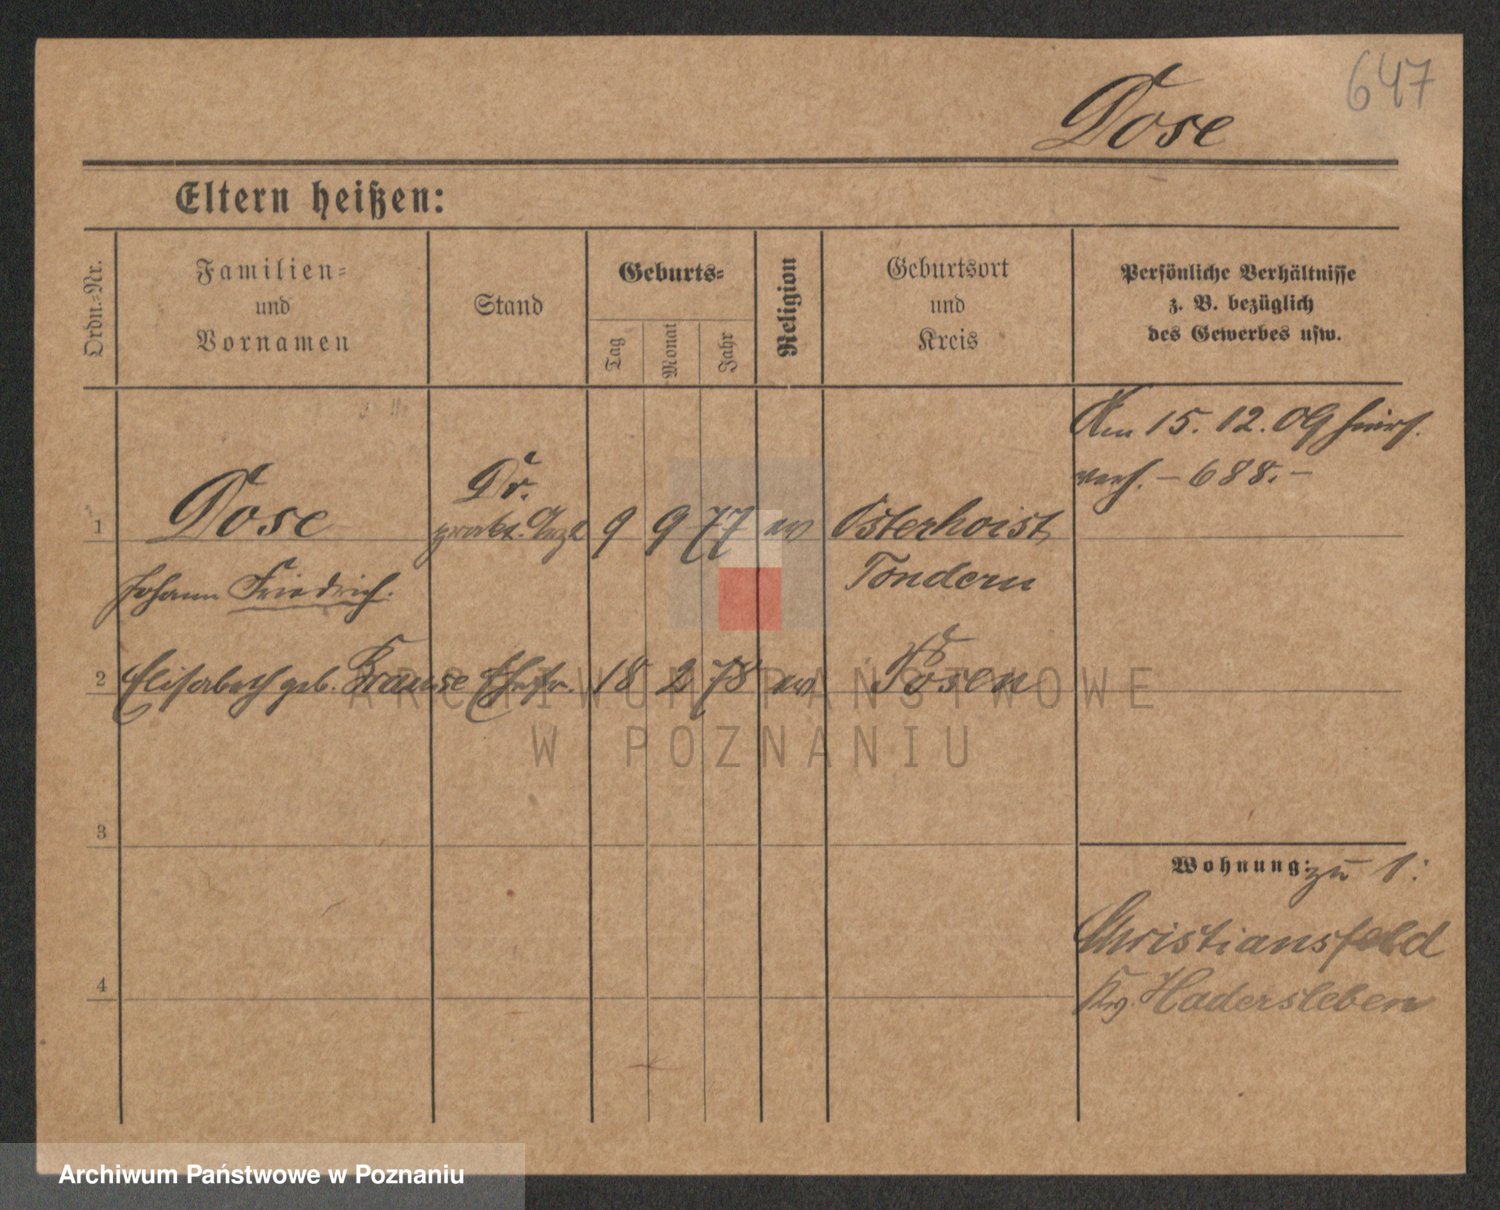 647
Dose
Eltern heißen:
Ordn.-Nr.
Familien-
und
Vornamen
Stand
Geburts-
Tag
Monat
Jahr
Religion
Geburtsort
und
Kreis
Persönliche Verhältnisse
z. B. bezüglich
des Gewerbes usw.
Am 15. 12. 09 hier
verh. - 688. -
1 Dose Dr. prakt. Arzt 9 9 77 ev Osterhoist
Johann Friedrich. Tondern
2 Elisabeth geb. Krause Ehefr. 18 2 78 ev. Posen
3
4
Wohnung: zu 1:
Christiansfeld
Krs. Hadersleben
ARCHIWUM PAŃSTWOWE
W POZNANIU
Archiwum Państwowe w Poznaniu